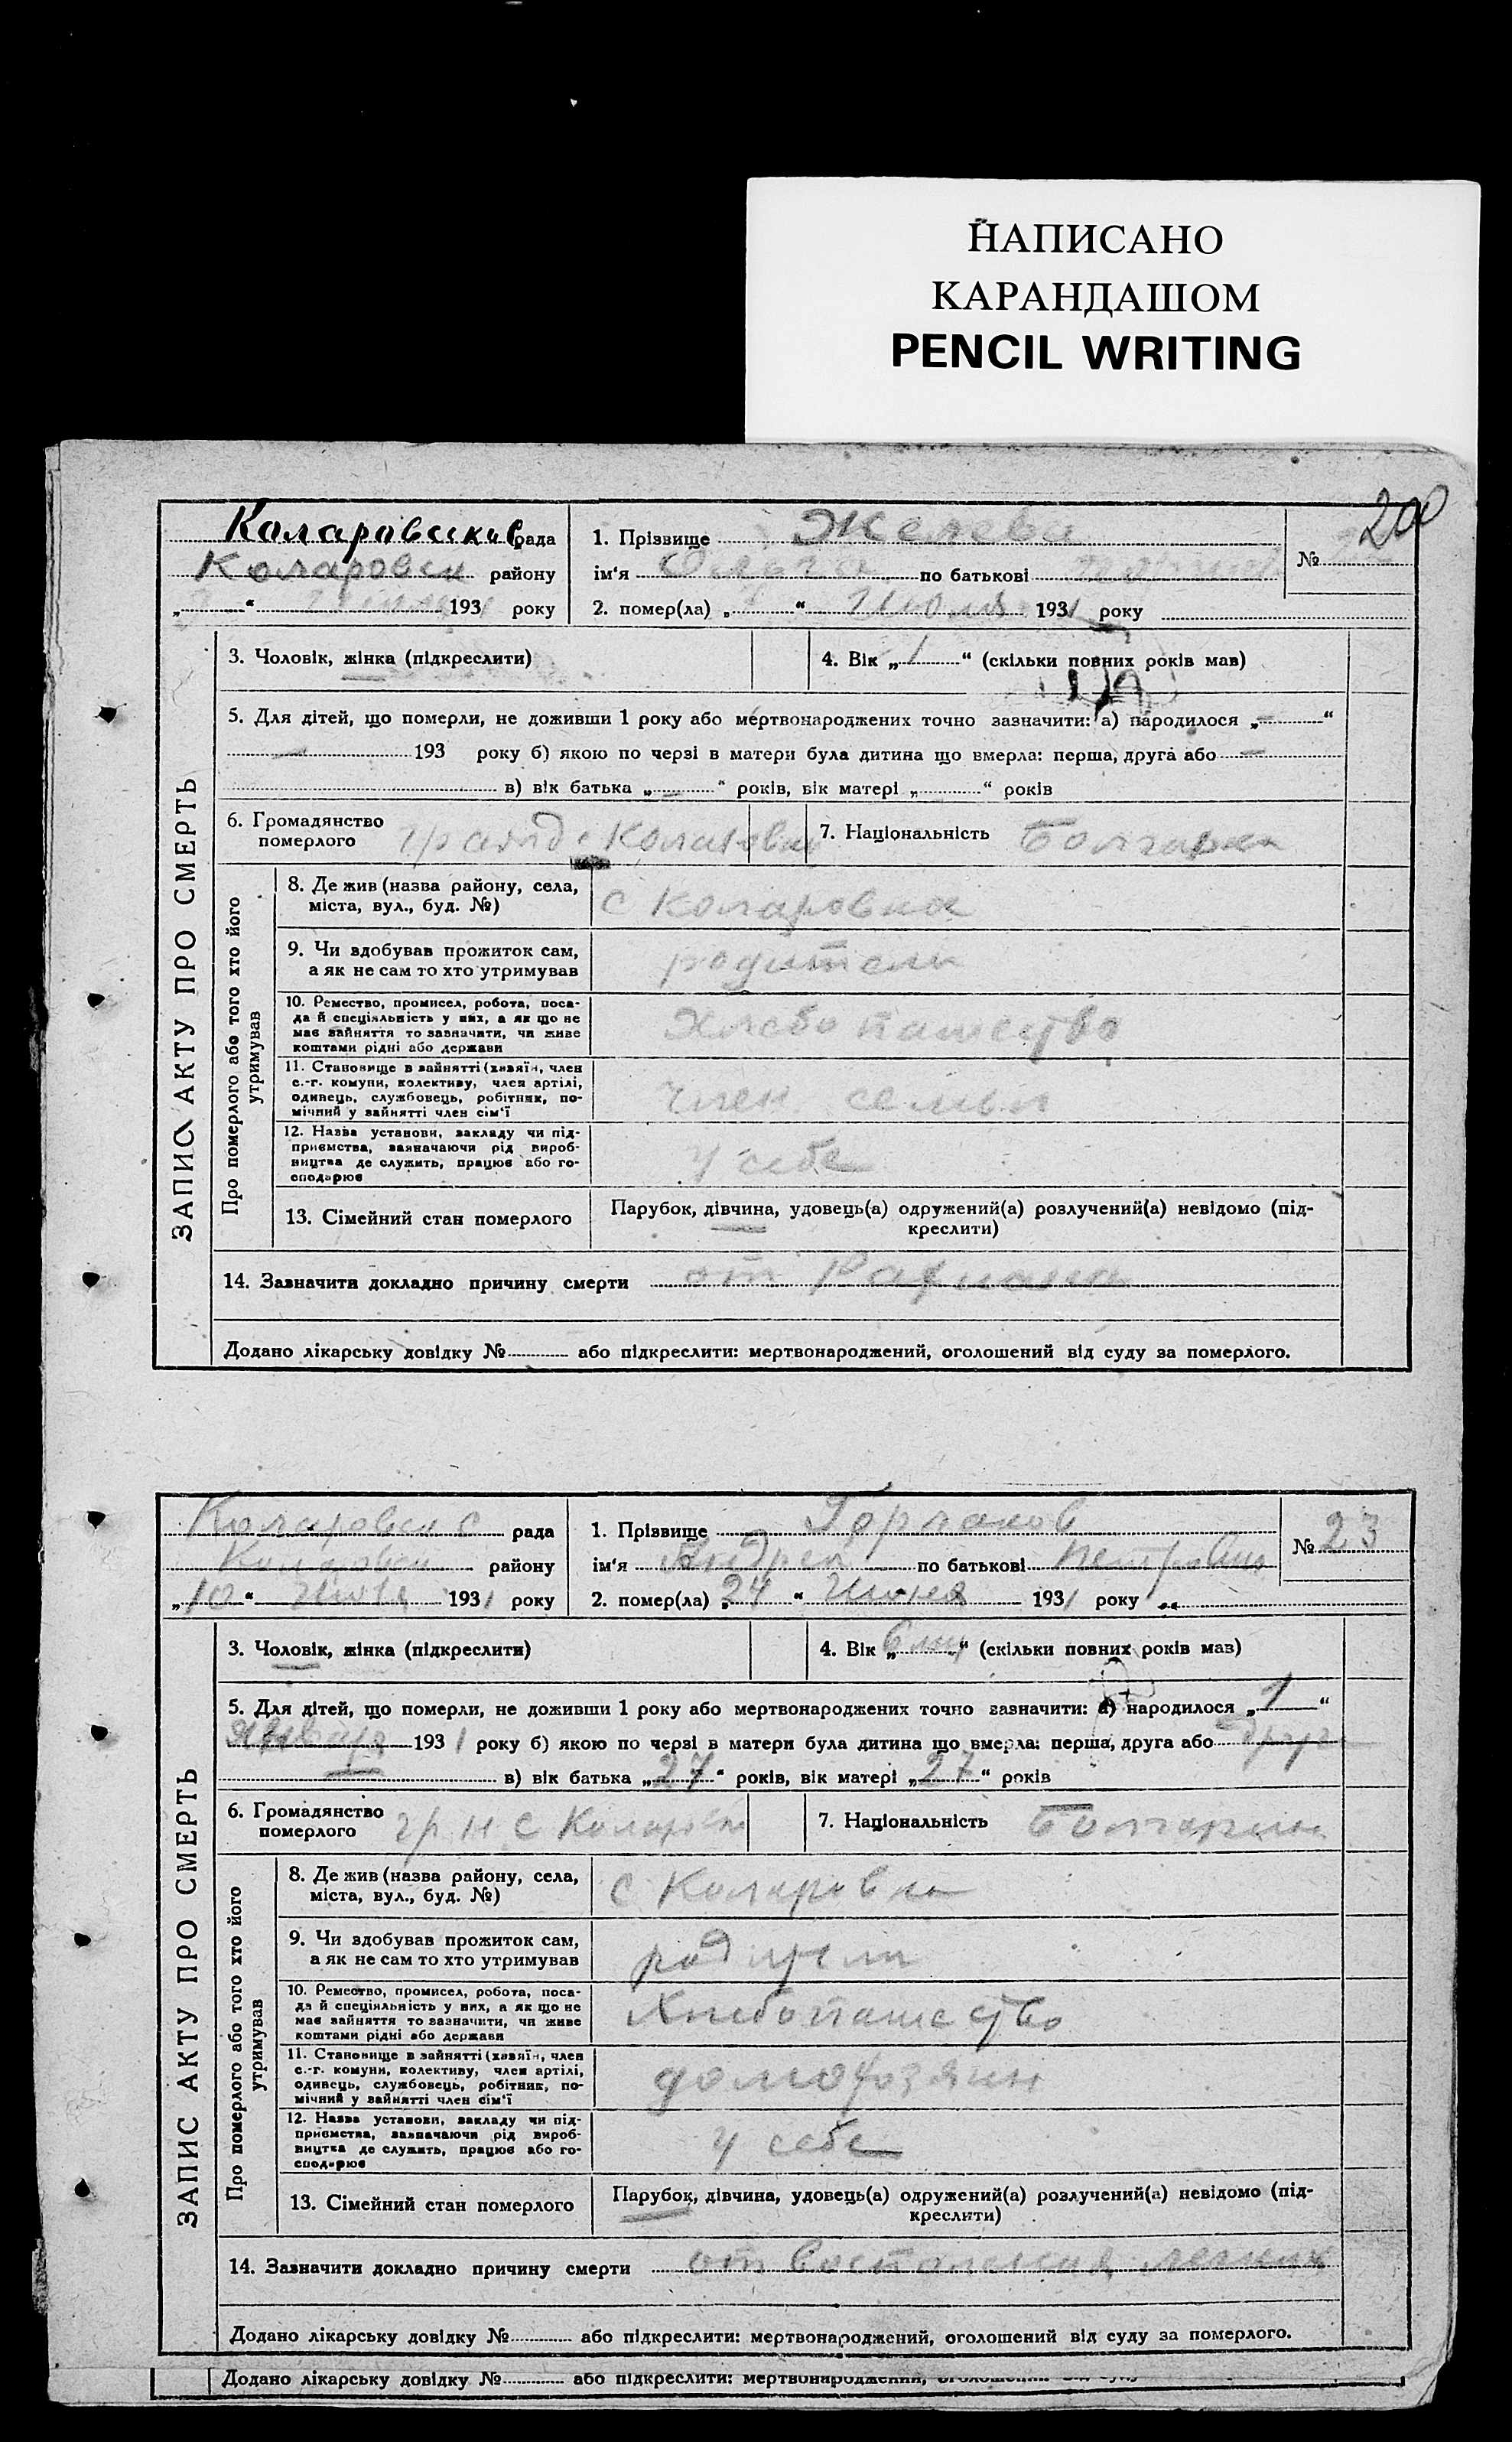 НАПИСАНО
КАРАНДАШОМ
PENCIL WRITING
200
Коларовский рада
Коларовск району
193 1 року
1. Прізвище Желева
ім'я Ольга по батькові
2. помер(ла) „ “ Июля 1931 року
№
ЗАПИС АКТУ ПРО СМЕРТЬ
3. Чоловік, жінка (підкреслити)
4. Вік „ 1 “ (скільки повних років мав)
5. Для дітей, що померли, не доживши 1 року або мертвонароджених точно зазначити: а) народилося „ — “
— 193 року б) якою по черзі в матери була дитина що вмерла: перша, друга або —
в) вік батька „ — “ років, вік матері „ “ років
6. Громадянство
померлого
7. Національність Болгарка
Про померлого або того хто його
утримував
8. Де жив (назва району, села,
міста, вул., буд. №)
с Коларовка
9. Чи здобував прожиток сам,
а як не сам то хто утримував
родители
10. Ремество, промисел, робота, поса-
да й спеціяльність у них, а як що не
має зайняття то зазначити, чи живе
коштами рідні або держави
Хлебопашество
11. Становище в зайнятті (хазяїн, член
с.-г. комуни, колективу, член артілі,
одинець, службовець, робітник, по-
мічний у зайнятті член сім'ї
член семьи
12. Назва установи, закладу чи під-
приємства, зазначаючи рід вироб-
ництва де служить, працює або го-
сподарює
у себе
13. Сімейний стан померлого
Парубок, дівчина, удовець(а) одружений(а) розлучений(а) невідомо (під-
креслити)
14. Зазначити докладно причину смерти от
Додано лікарську довідку № або підкреслити: мертвонароджений, оголошений від суду за померлого.
Коларовск с рада
Коларовск району
„ 10 “ Июля 193 1 року
1. Прізвище Горланов
ім'я Андрей по батькові Петрович
2. помер(ла) „ 24 “ Июня 193 1 року
№ 23
ЗАПИС АКТУ ПРО СМЕРТЬ
3. Чоловік, жінка (підкреслити)
4. Вік „ 6 мц “ (скільки повних років маз)
5. Для дітей, що померли, не доживши 1 року або мертвонароджених точно зазначити: а) народилося „ 1 “
Января 193 1 року б) якою по черзі в матери була дитина що вмерла: перша, друга або
в) вік батька „ 27 “ років, вік матері „ 27 “ років
6. Громадянство
померлого
гр н с Коларовк
7. Національність Болгарин
Про померлого або того хто його
утримував
8. Де жив (назва району, села,
міста, вул., буд. №)
с Коларовка
9. Чи здобував прожиток сам,
а як не сам то хто утримував
родители
10. Ремество, промисел, робота, поса-
да й спеціяльність у них, а як що не
має зайняття то зазначити, чи живе
коштами рідні або держави
Хлебопашество
11. Становище в зайнятті (хазяїн, член
с.-г. комуни, колективу, член артілі,
одинець, службовець, робітник, по-
мічний у зайнятті член сім'ї
домохозяин
12. Назва установи, закладу чи під-
приємства, зазначаючи рід вироб-
ництва де служить, працює або го-
сподарює
у себе
13. Сімейний стан померлого
Парубок, дівчина, удовець(а) одружений(а) розлучений(а) невідомо (під-
креслити)
14. Зазначити докладно причину смерти от воспаления легких
Додано лікарську довідку № або підкреслити: мертвонароджений, оголошений від суду за померлого.
Додано лікарську довідку № або підкреслити: мертвонароджений,